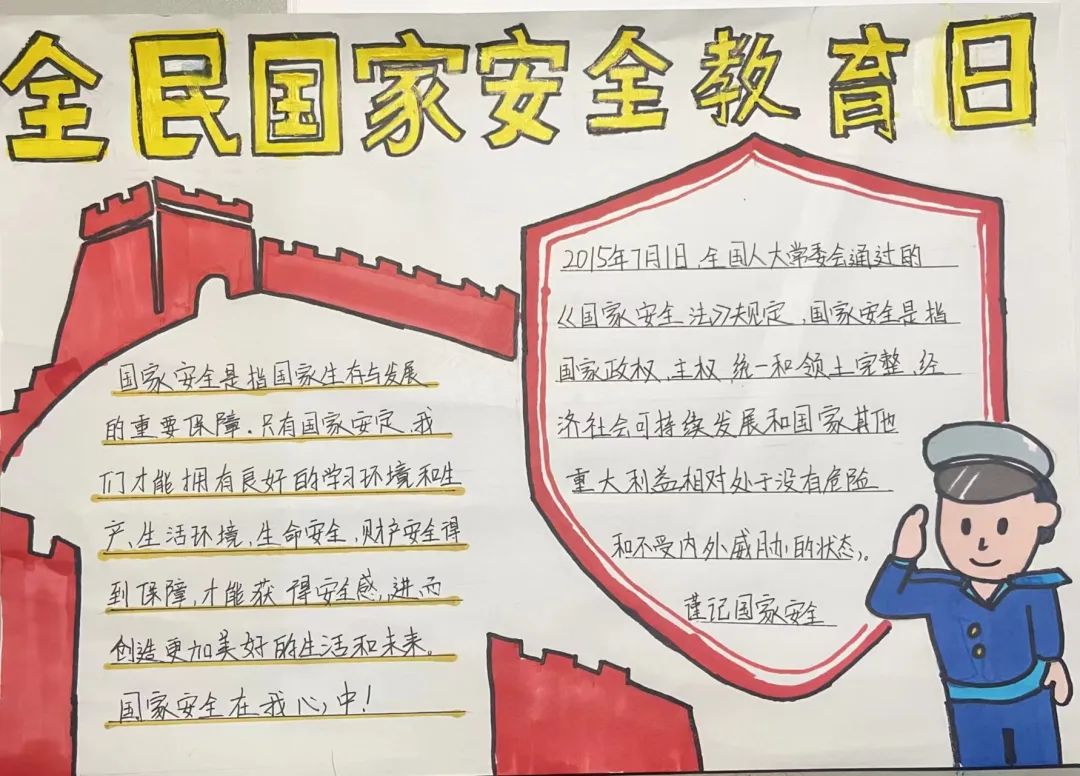 全民国家安全教育日
国家安全是指国家生存与发展
的重要保障。只有国家安定,我
们才能拥有良好的学习环境和生
产、生活环境,生命安全,财产安全得
到保障,才能获得安全感,进而
创造更加美好的生活和未来。
国家安全在我心中!
2015年7月1日,全国人大常委会通过的
《国家安全法》规定,国家安全是指
国家政权、主权、统一和领土完整、经
济社会可持续发展和国家其他
重大利益相对处于没有危险
和不受内外威胁的状态。
谨记国家安全